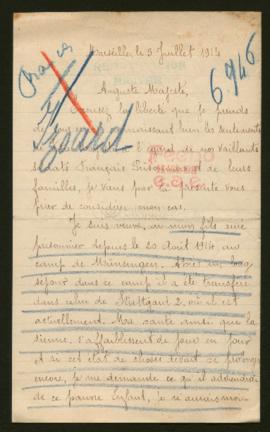 Marseille, le 3 Juillet 191
Auguste Majesté,
Excusez la liberté que je prends
de vous connaissant bien les sentiments
l'égard de nos vaillants
soldats Français Prisonniers et de leurs
familles, je viens par la présente vous
prier de considérer mon cas.
Je suis veuve, mon fils
prisonnier depuis le 20 Août 1914 au
camp de Après un long
séjour dans ce camp il a été transféré
dans celui de Stuttgart 2, où il est
actuellement. Ma santé ainsi que la
sienne, s'affaiblissent de jour en jour
et si cet état de choses devait se prolonger
encore, je me demande ce qu'il adviendrai
de ce pauvre enfant, je
6946